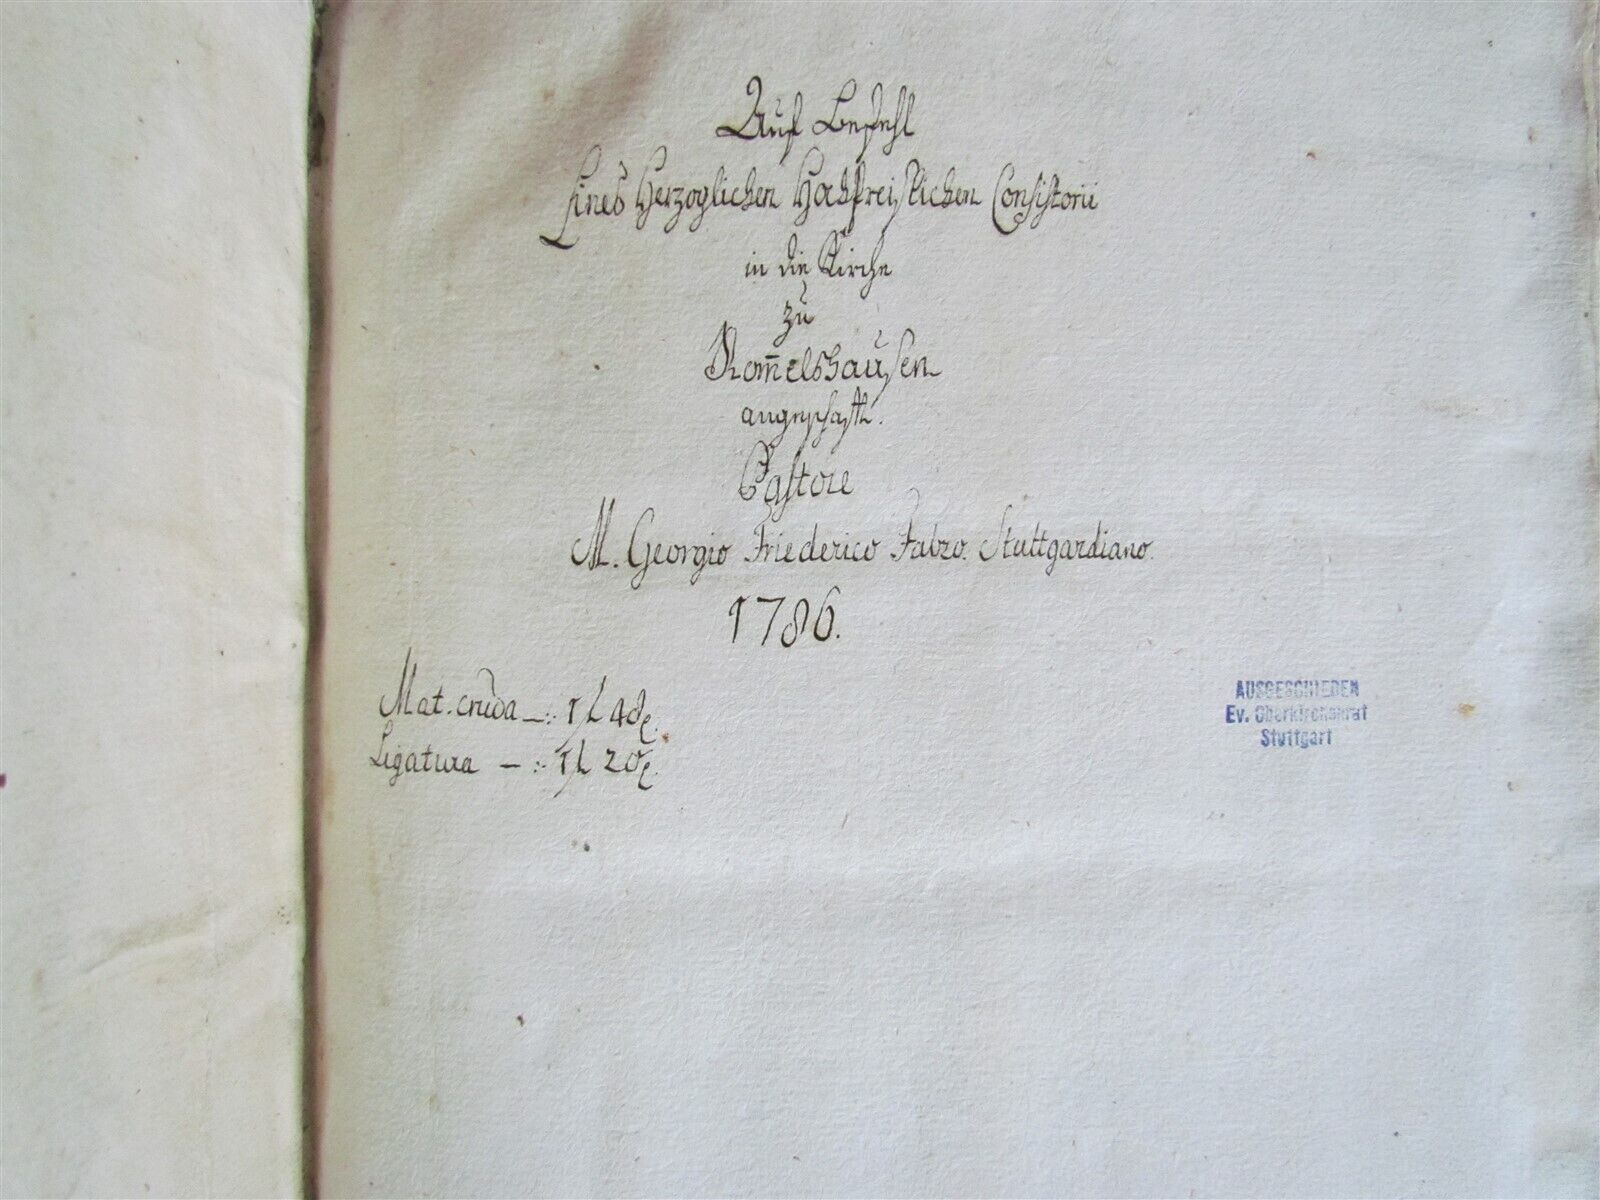 Auf Befehl
Eines Herzoglichen Hochpreißlichen Consistorii
in die Kirche
zu
Rom̄elshausen
angeschafft.
Pastore
M. Georgio Friederico Fabro. Stuttgardiano.
1786.
Mat. cruda —:. 1 f. 48
Ligatura —:. 1 f. 20
AUSGESCHIEDEN
Ev. Oberkirchenrat
Stuttgart